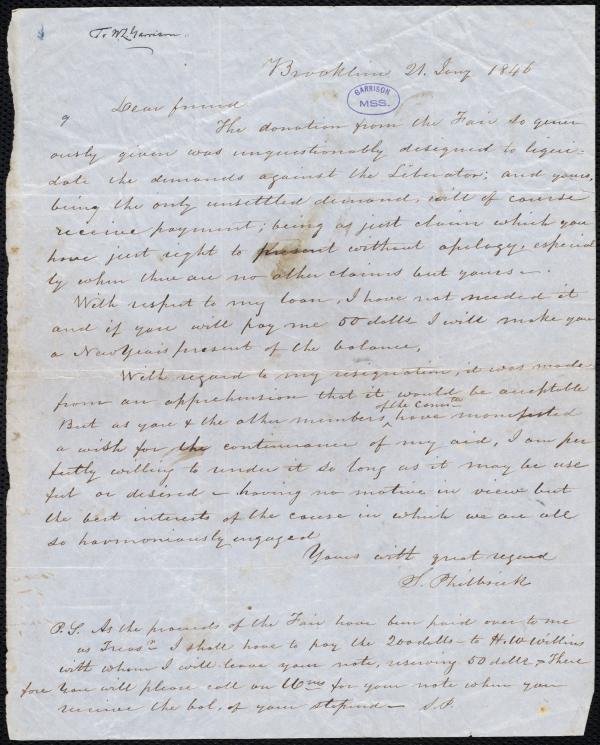 To W L Garrison.
Brookline 21. Jany 1846
GARRISON
MSS.
9
Dear friend
The donation from the Fair so gener-
ously given was unquestionably designed to liqui-
date the demands against the Liberator; and yours,
being the only unsettled demand, will of course
receive payment; being as just claim which you
have just right to present without apology, especial
ly when there are no other claims but yours—.
With respect to my loan, I have not needed it
and if you will pay me 50 dolls I will make you
a New Years present of the balance,
With regard to my resignation, it was made
from an apprehension that it would be acceptable
But as you & the other members of the Comm have manifested
a wish for the continuance of my aid, I am per
fectly willing to render it so long as it may be use
ful or desired — having no motive in view but
the best interests of the cause in which we are all
so harmoniously engaged
Yours with great regard
S. Philbrick
P.S. As the proceeds of the Fair have been paid over to me
as Treasr I shall have to pay the 200 dolls to H. W. Williams
with whom I will leave your note, reserving 50 dolls & There
fore You will please call on Wms for your note when you
receive the bal. of your stipend— S.P.